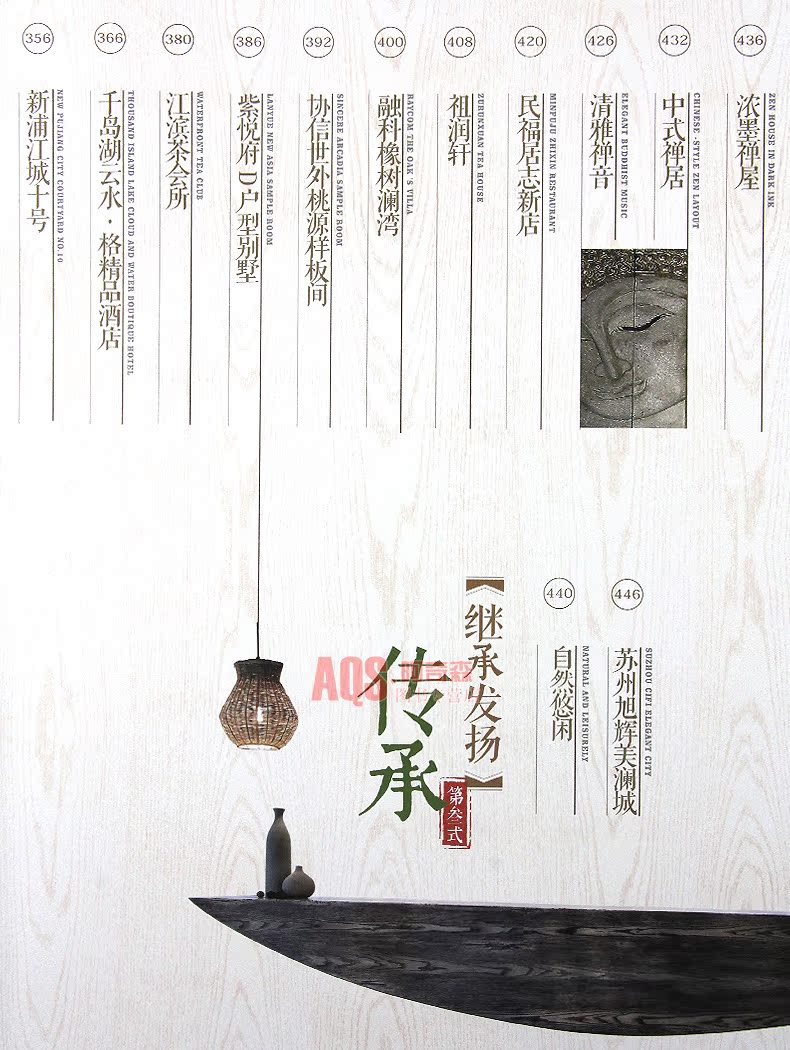 436
浓墨禅屋
ZEN HOUSE IN DARK INK
432
中式禅居
CHINESE -STYLE ZEN LAYOUT
426
清雅禅音
ELEGANT BUDDHIST MUSIC
420
民福居志新店
MINFUJU ZHIXIN RESTAURANT
408
祖润轩
ZURUNXUAN TEA HOUSE
400
融科橡树澜湾
RAYCOM THE OAK'S VILLA
392
协信世外桃源样板间
SINCERE ARCADIA SAMPLE ROOM
386
紫悦府D户型别墅
LANYUE NEW ASIA SAMPLE ROOM
380
江滨茶会所
WATERFRONT TEA CLUB
366
千岛湖云水·格精品酒店
THOUSAND ISLAND LAKE CLOUD AND WATER BOUTIQUE HOTEL
356
新浦江城十号
NEW PUJIANG CITY COURTYARD NO.10
446
苏州旭辉美澜城
SUZHOU CIFI ELEGANT CITY
440
自然悠闲
NATURAL AND LEISURELY
【继承发扬】
传承
第叁式
AQS